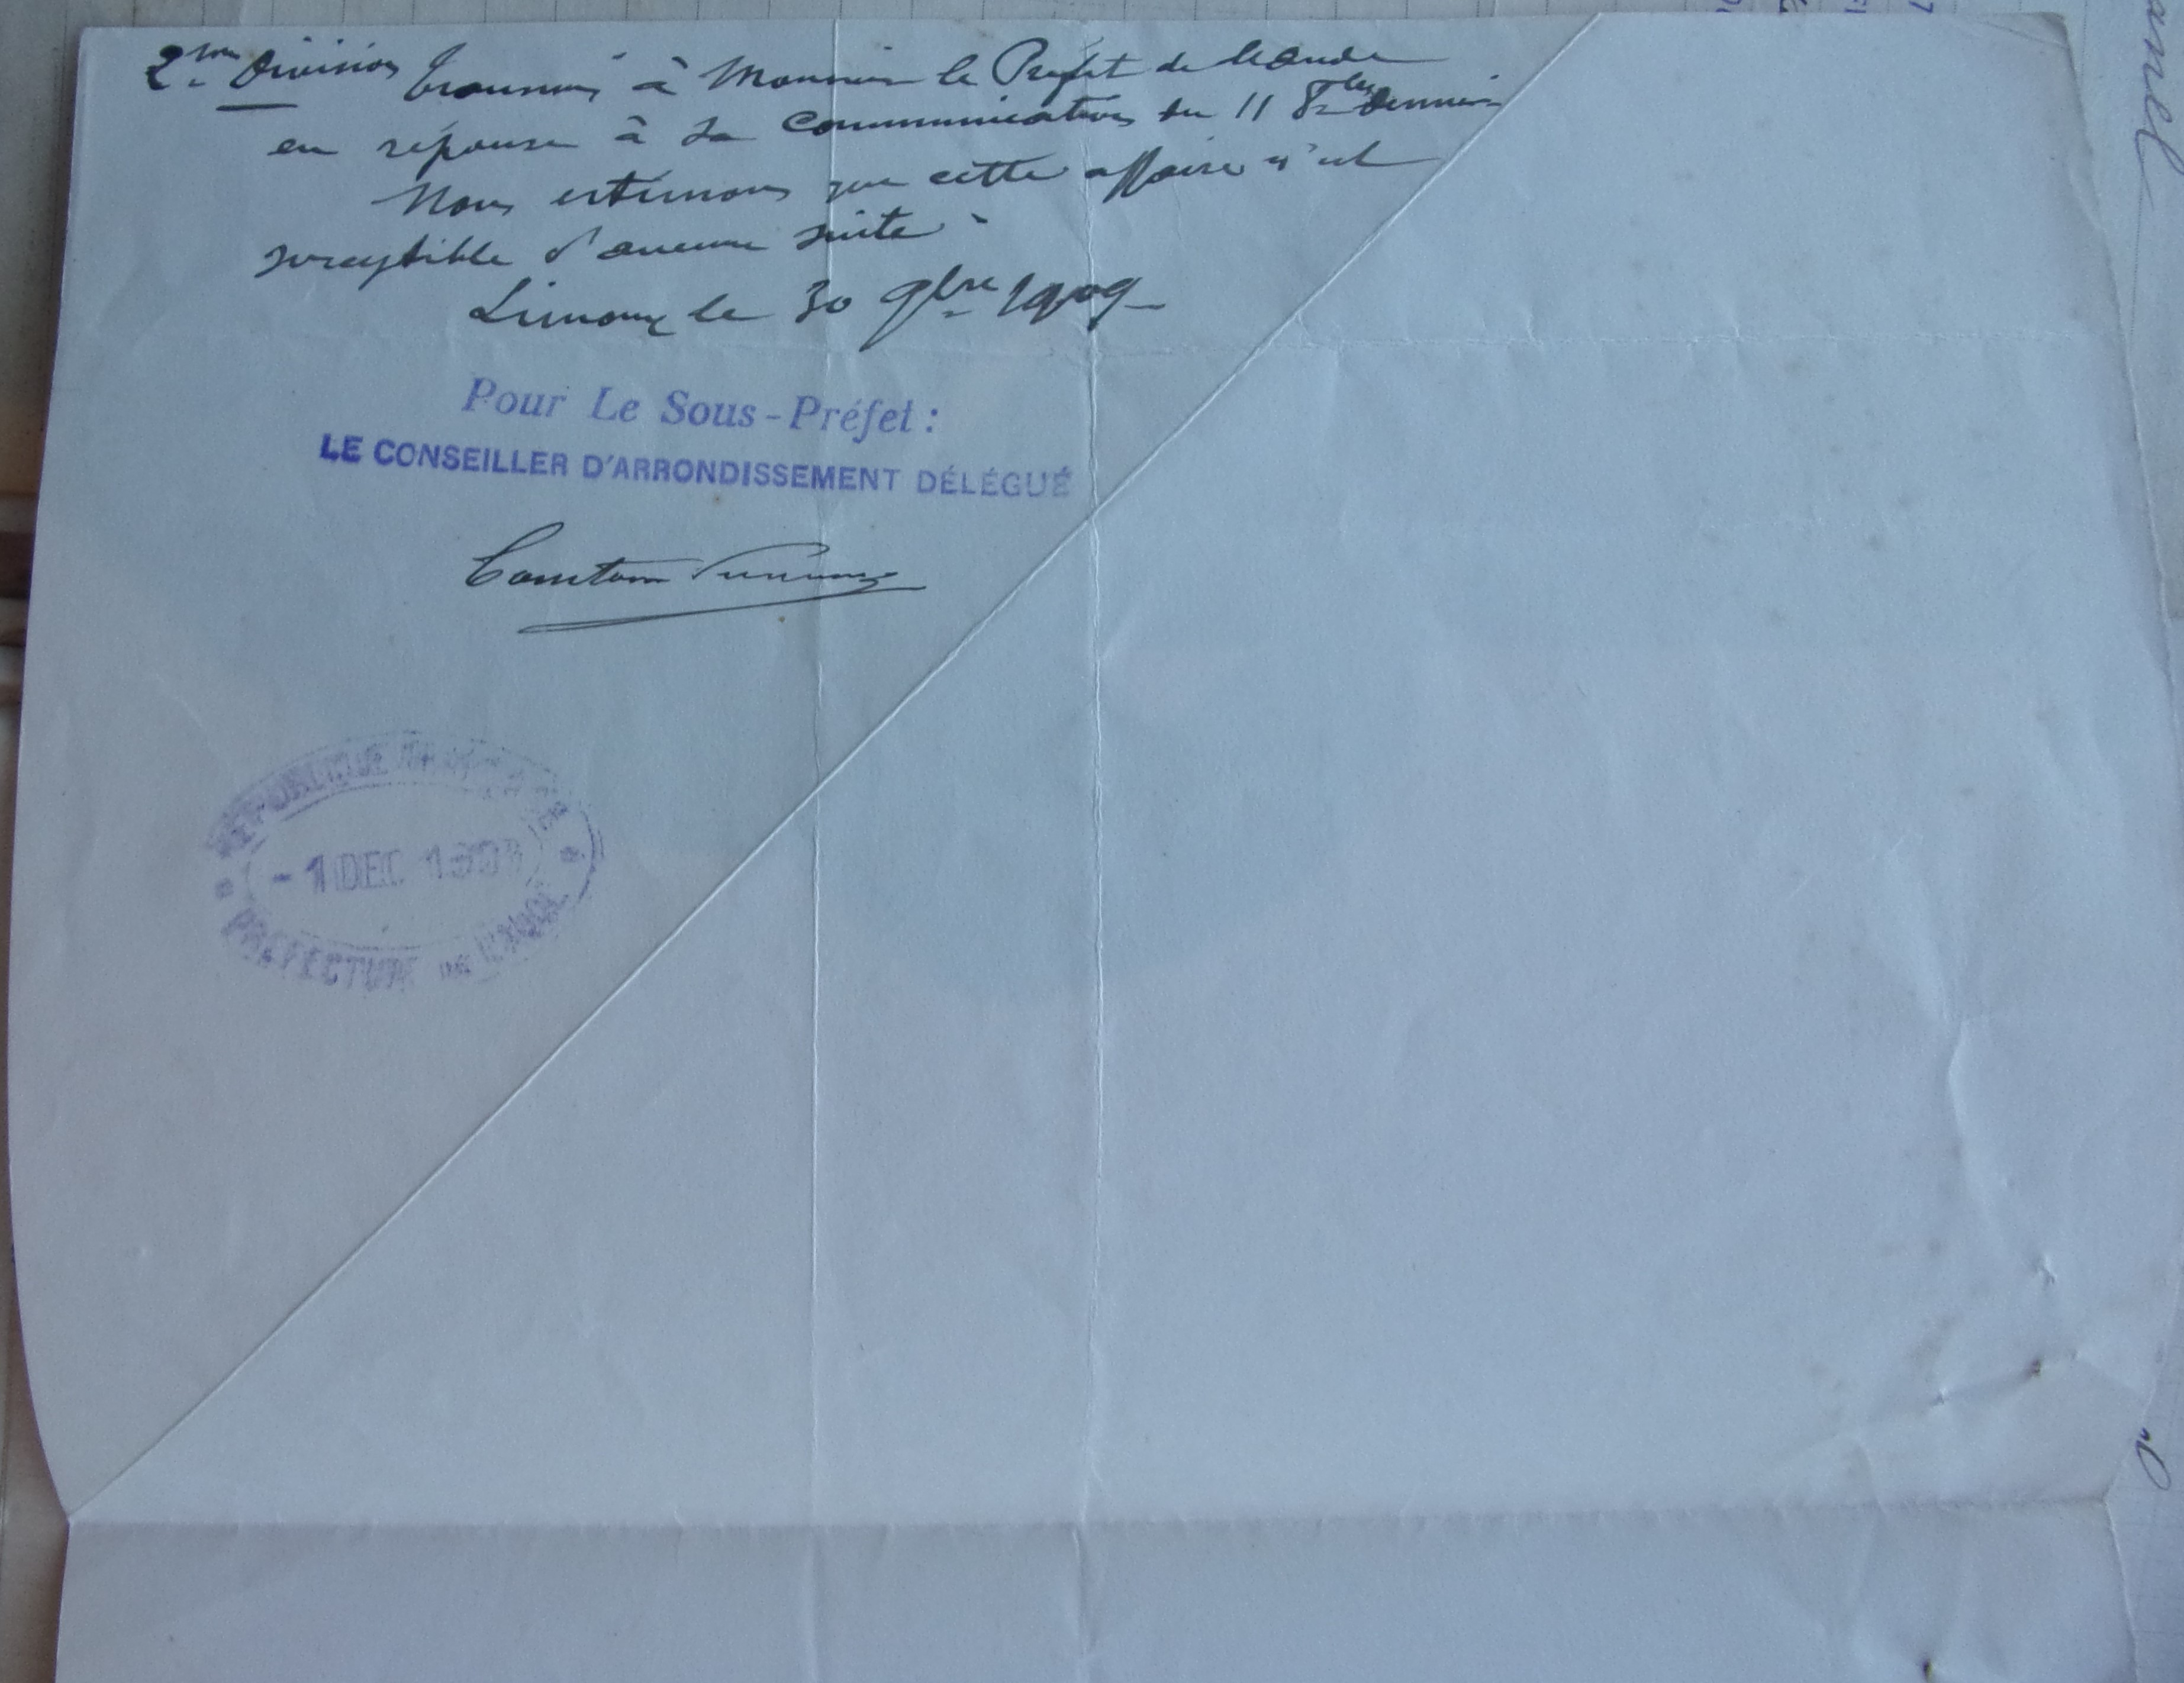 2eme Division Transmis à Monsieur le Préfet de l'Aude
en réponse à sa communication du 11 8bre dernier
Nous estimons que cette affaire n'est
susceptible d'aucune suite.
Limoux le 30 9bre 1909
Pour Le Sous-Préfet :
LE CONSEILLER D'ARRONDISSEMENT DÉLÉGUÉ
RÉPUBLIQUE FRANÇAISE
-1 DEC 190
PRÉFECTURE DE L'AUDE